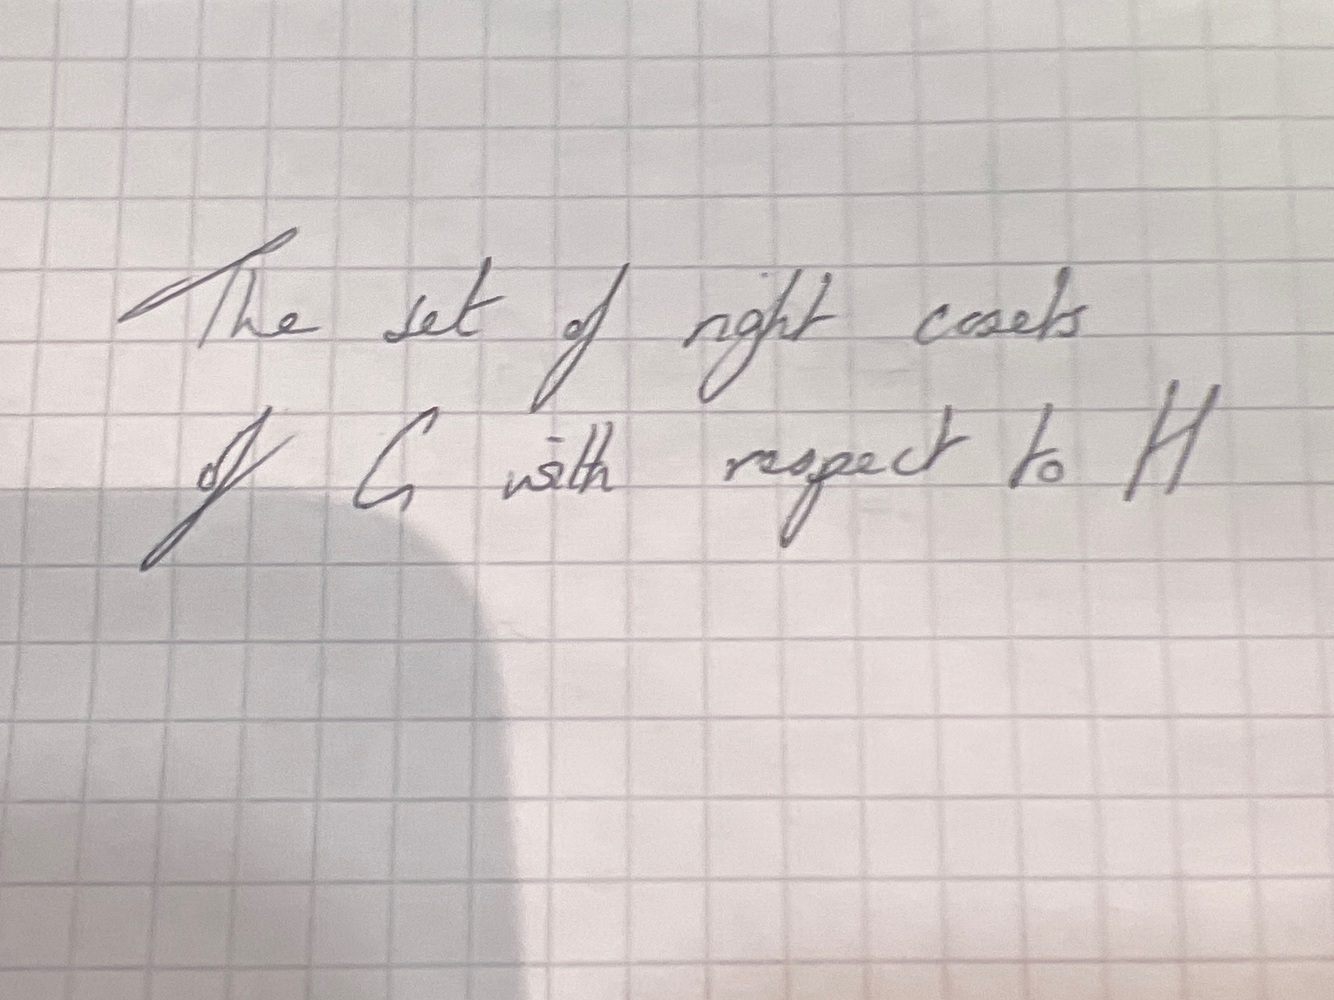 The set of right cosets
of G with respect to H